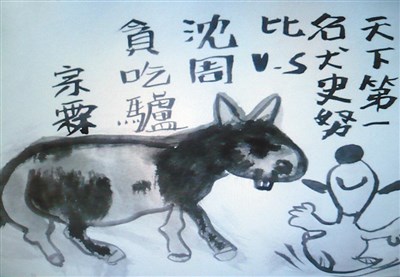 天下第一
名犬史努
比 V.S
沈周
貪吃驢
宗霖